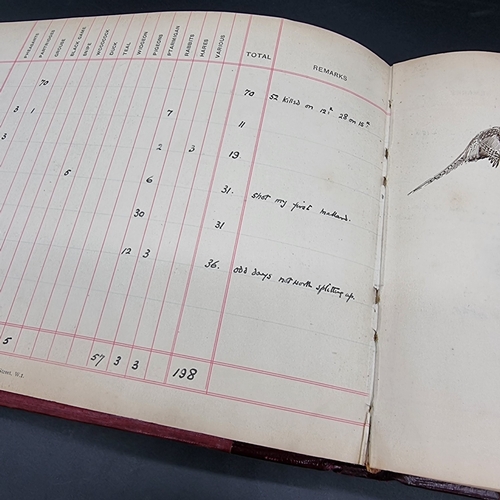 PHEASANTS PARTRIDGES GROUSE BLACK GAME SNIPE WOODCOCK DUCK TEAL WIDGEON PIGEONS PTARMIGAN RABBITS HARES VARIOUS TOTAL REMARKS
70 70 52 killed on 12th 28 on 15th
3 1 7 11
3 2 3 19
5 6 31. shot my first mallard.
30 31
12 3 36. odd days not worth splitting up.
5 57 3 3 198
Street, W.1.